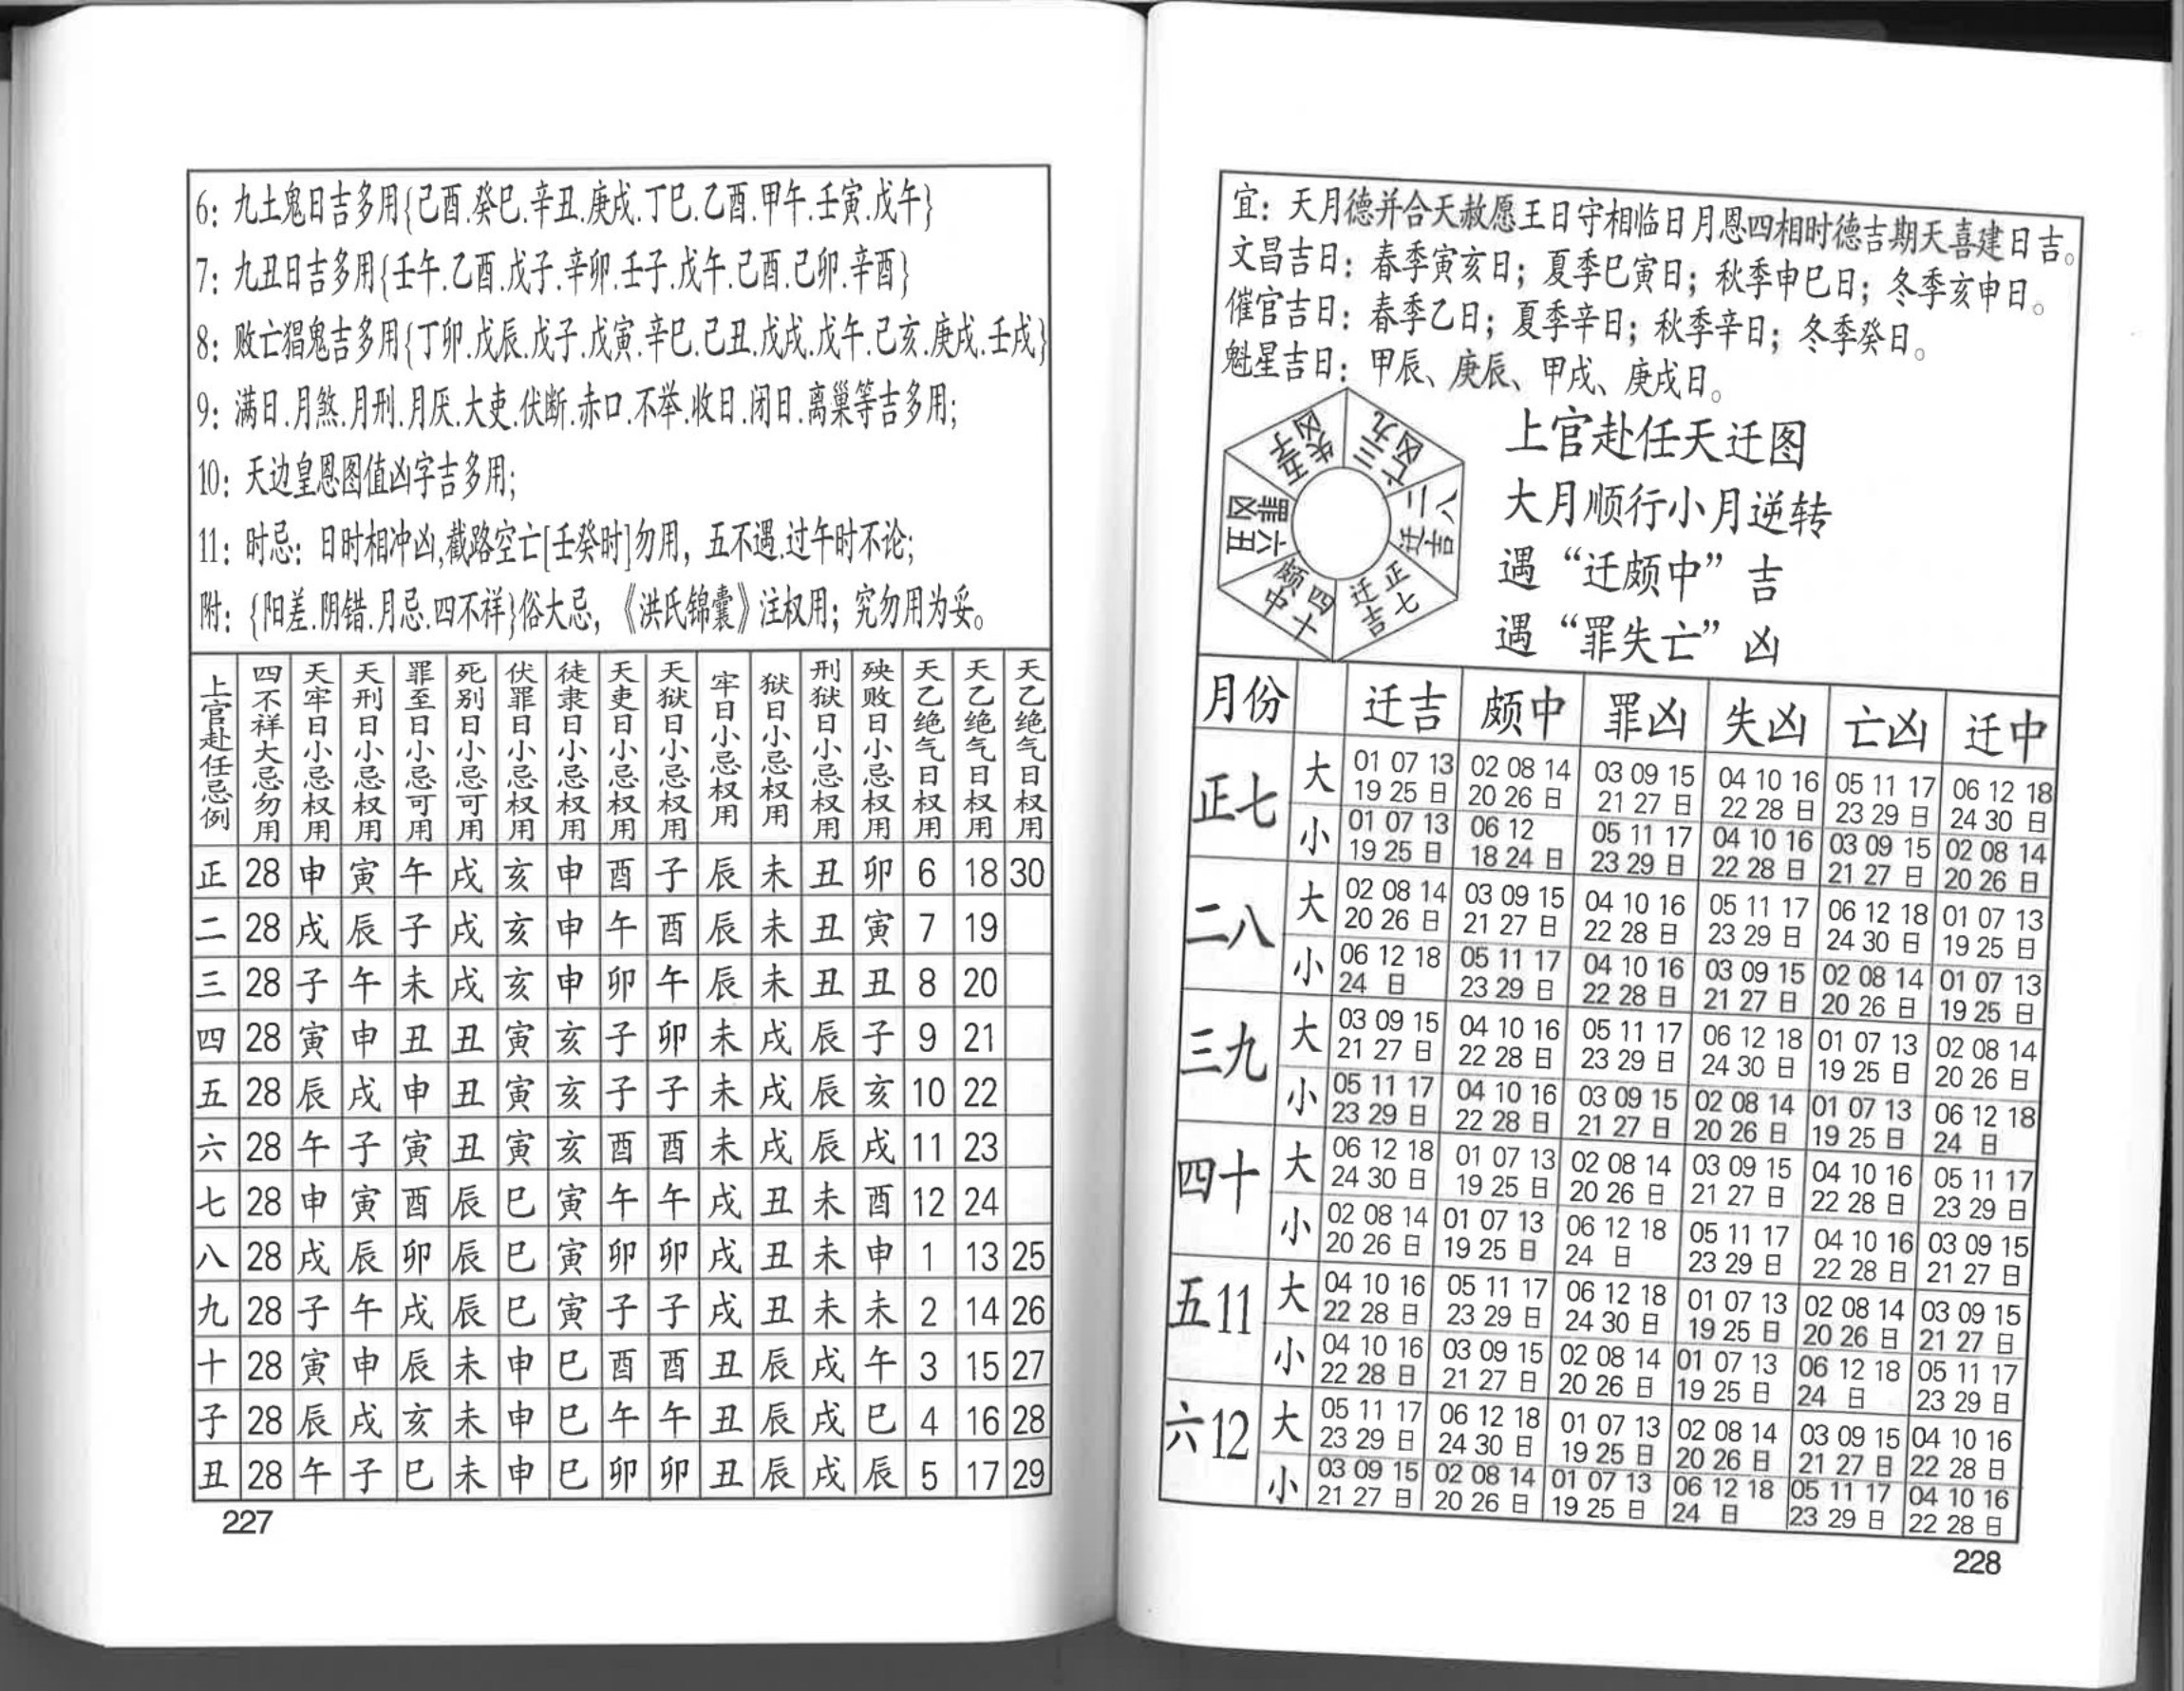 6：九土鬼日吉多用{己酉.癸巳.辛丑.庚戌.丁巳.乙酉.甲午.壬寅.戊午}
7：九丑日吉多用{壬午.乙酉.戊子.辛卯.壬子.戊午.己酉.己卯.辛酉}
8：败亡猖鬼吉多用{丁卯.戊辰.戊子.戊寅.辛巳.己丑.戊戌.戊午.己亥.庚戌.壬戌}
9：满日.月煞.月刑.月厌.大吏.伏断.赤口.不举.收日.闭日.离巢等吉多用；
10：天边皇恩图值凶字吉多用；
11：时忌：日时相冲凶,截路空亡[壬癸时]勿用，五不遇.过午时不论；
附：{阳差.阴错.月忌.四不祥}俗大忌，《洪氏锦囊》注权用；究勿用为妥。
上官赴任忌例 四不祥大忌勿用 天牢日小忌权用 天刑日小忌权用 罪至日小忌可用 死别日小忌可用 伏罪日小忌权用 徒隶日小忌权用 天吏日小忌权用 天狱日小忌权用 牢日小忌权用 狱日小忌权用 刑狱日小忌权用 殃败日小忌权用 天乙绝气日权用 天乙绝气日权用 天乙绝气日权用
正 28 申 寅 午 戌 亥 申 酉 子 辰 未 丑 卯 6 18 30
二 28 戌 辰 子 戌 亥 申 午 酉 辰 未 丑 寅 7 19
三 28 子 午 未 戌 亥 申 卯 午 辰 未 丑 丑 8 20
四 28 寅 申 丑 丑 寅 亥 子 卯 未 戌 辰 子 9 21
五 28 辰 戌 申 丑 寅 亥 子 子 未 戌 辰 亥 10 22
六 28 午 子 寅 丑 寅 亥 酉 酉 未 戌 辰 戌 11 23
七 28 申 寅 酉 辰 巳 寅 午 午 戌 丑 未 酉 12 24
八 28 戌 辰 卯 辰 巳 寅 卯 卯 戌 丑 未 申 1 13 25
九 28 子 午 戌 辰 巳 寅 子 子 戌 丑 未 未 2 14 26
十 28 寅 申 辰 未 申 巳 酉 酉 丑 辰 戌 午 3 15 27
子 28 辰 戌 亥 未 申 巳 午 午 丑 辰 戌 巳 4 16 28
丑 28 午 子 巳 未 申 巳 卯 卯 丑 辰 戌 辰 5 17 29
227
宜：天月德并合天赦愿王日守相临日月恩四相时德吉期天喜建日吉。
文昌吉日：春季寅亥日；夏季巳寅日；秋季申巳日；冬季亥申日。
催官吉日：春季乙日；夏季辛日；秋季辛日；冬季癸日。
魁星吉日：甲辰、庚辰、甲戌、庚戌日。
五子失凶
三九亡凶
二八迁吉
正七迁吉
四十颇中
六丑罪凶
上官赴任天迁图
大月顺行小月逆转
遇“迁颇中”吉
遇“罪失亡”凶
月份 迁吉 颇中 罪凶 失凶 亡凶 迁中
正七 大 01 07 13 19 25 日 02 08 14 20 26 日 03 09 15 21 27 日 04 10 16 22 28 日 05 11 17 23 29 日 06 12 18 24 30 日
小 01 07 13 19 25 日 06 12 18 24 日 05 11 17 23 29 日 04 10 16 22 28 日 03 09 15 21 27 日 02 08 14 20 26 日
二八 大 02 08 14 20 26 日 03 09 15 21 27 日 04 10 16 22 28 日 05 11 17 23 29 日 06 12 18 24 30 日 01 07 13 19 25 日
小 06 12 18 24 日 05 11 17 23 29 日 04 10 16 22 28 日 03 09 15 21 27 日 02 08 14 20 26 日 01 07 13 19 25 日
三九 大 03 09 15 21 27 日 04 10 16 22 28 日 05 11 17 23 29 日 06 12 18 24 30 日 01 07 13 19 25 日 02 08 14 20 26 日
小 05 11 17 23 29 日 04 10 16 22 28 日 03 09 15 21 27 日 02 08 14 20 26 日 01 07 13 19 25 日 06 12 18 24 日
四十 大 06 12 18 24 30 日 01 07 13 19 25 日 02 08 14 20 26 日 03 09 15 21 27 日 04 10 16 22 28 日 05 11 17 23 29 日
小 02 08 14 20 26 日 01 07 13 19 25 日 06 12 18 24 日 05 11 17 23 29 日 04 10 16 22 28 日 03 09 15 21 27 日
五11 大 04 10 16 22 28 日 05 11 17 23 29 日 06 12 18 24 30 日 01 07 13 19 25 日 02 08 14 20 26 日 03 09 15 21 27 日
小 04 10 16 22 28 日 03 09 15 21 27 日 02 08 14 20 26 日 01 07 13 19 25 日 06 12 18 24 日 05 11 17 23 29 日
六12 大 05 11 17 23 29 日 06 12 18 24 30 日 01 07 13 19 25 日 02 08 14 20 26 日 03 09 15 21 27 日 04 10 16 22 28 日
小 03 09 15 21 27 日 02 08 14 20 26 日 01 07 13 19 25 日 06 12 18 24 日 05 11 17 23 29 日 04 10 16 22 28 日
228